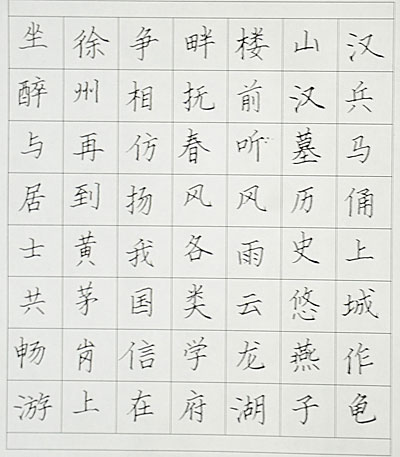 汉兵马俑上城作龟
山汉墓历史悠燕子
楼前听风雨云龙湖
畔抚春风各类学府
争相仿扬我国信在
徐州再到黄茅岗上
坐醉与居士共畅游